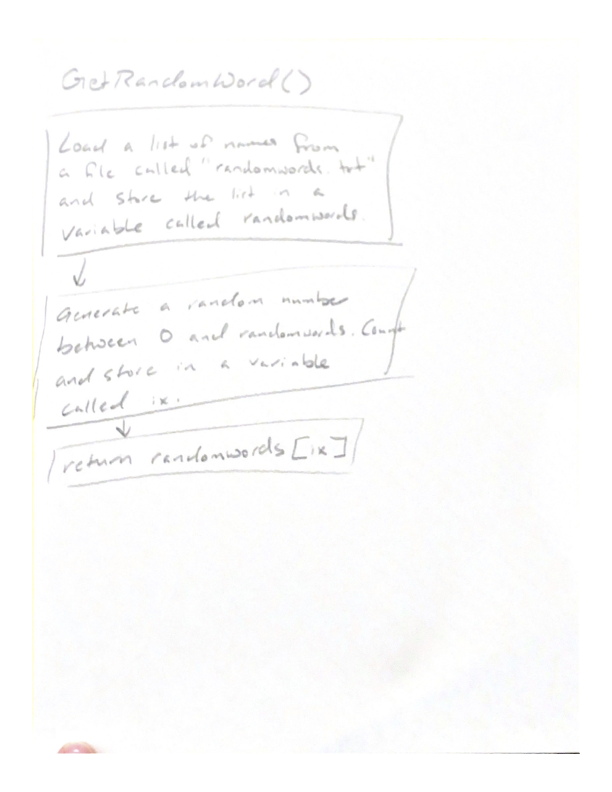 GetRandomWord()
Load a list of names from
a file called "randomwords.txt"
and store the list in a
variable called randomwords.
Generate a random number
between 0 and randomwords.Count
and store in a variable
called ix.
return randomwords[ix]